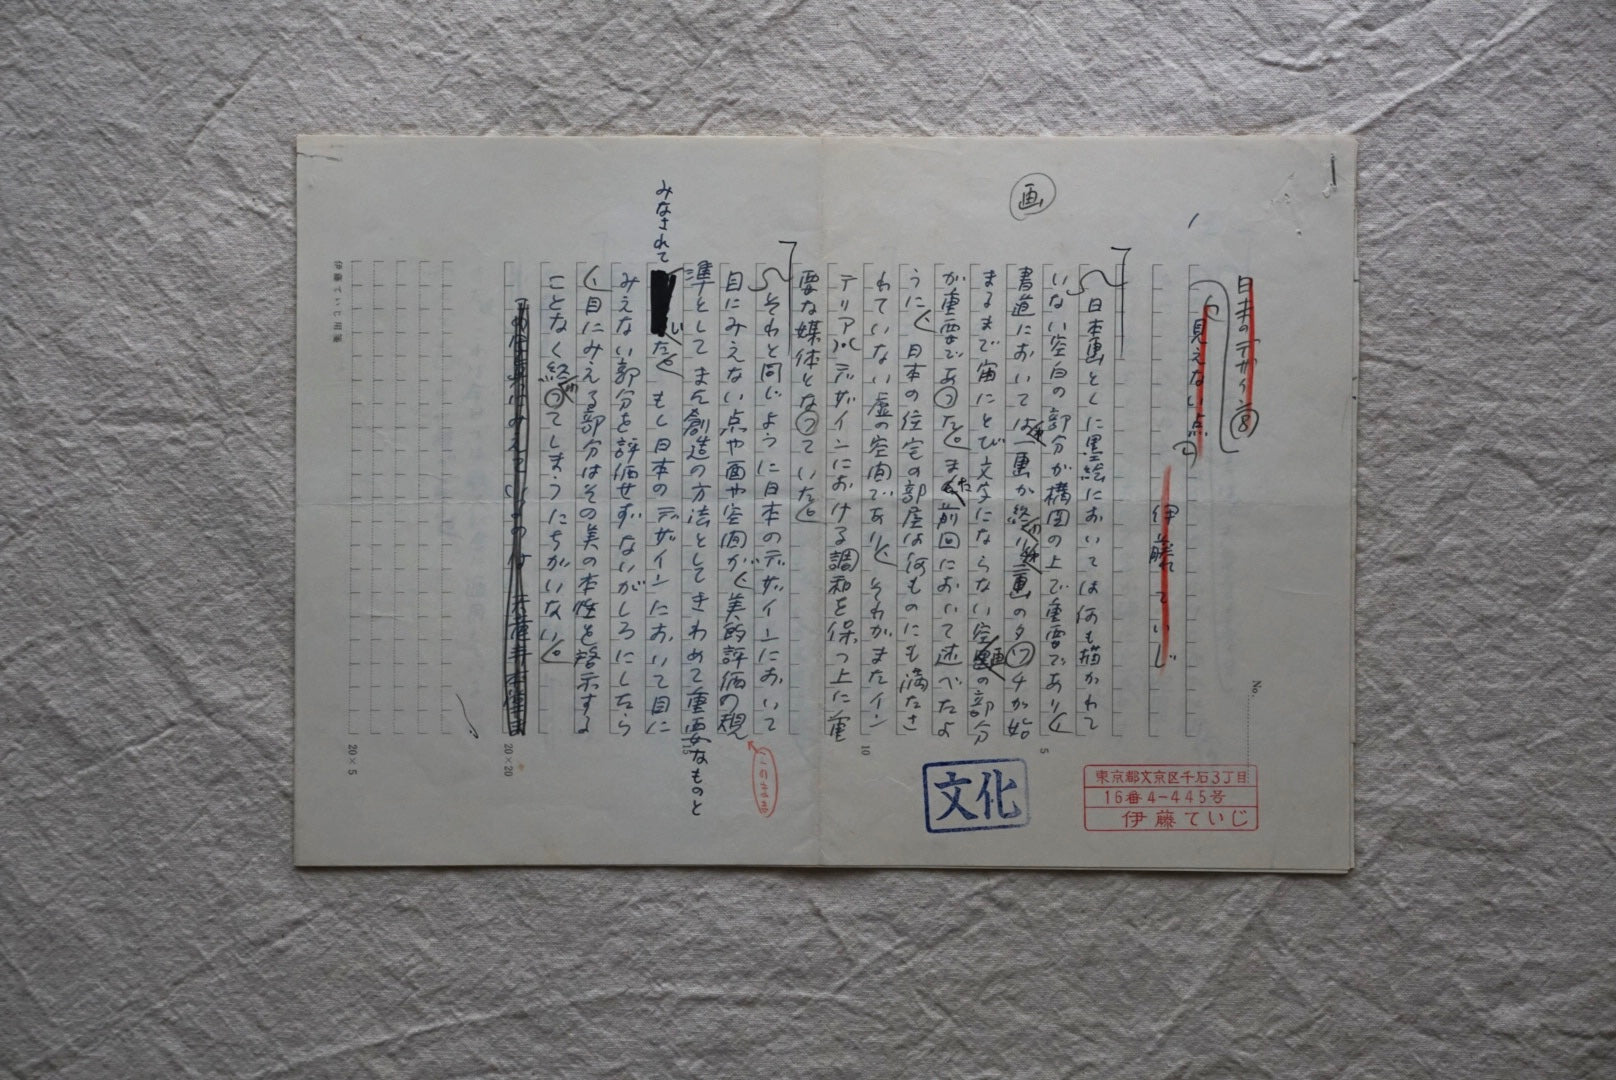 1
画
No.
日本のデザイン⑧
見えない点
伊藤ていじ
日本画とくに墨絵においては何も描かれて
いない空白の部分が構図の上で重要であり、
書道においては一画が終り次画のタッチが始
まるまで宙にとび文字にならない空画の部分
が重要であった。また前回において述べたよ
うに、日本の住宅の部屋は何ものにも満たさ
れていない虚の空間であり、それがまたイン
テリア・デザインにおける調和を保つ上に重
要な媒体となっていた。
それと同じように日本のデザインにおいて
目にみえない点や面や空間が、美的評価の規
準としてまた創造の方法としてきわめて重要なものと
みなされて
た。もし日本のデザインにおいて目に
みえない部分を評価せずないがしろにしたら
、目にみえる部分はその美の本性を啓示する
ことなく終ってしまうにちがいない。
5
10
15
20×20
20×5
伊藤ていじ用箋
文化
東京都文京区千石3丁目
16番4-445号
伊藤ていじ